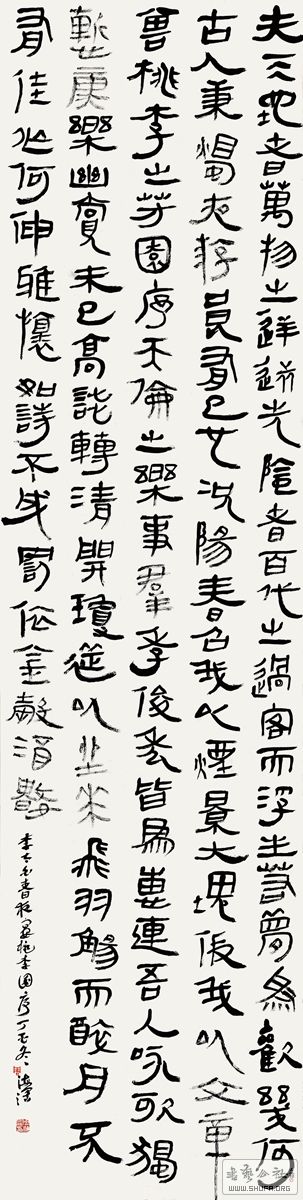 夫天地者萬物之逆旅光陰者百代之過客而浮生若夢為歡幾何
古人秉燭夜游良有以也況陽春召我以煙景大塊假我以文章
會桃李之芳園序天倫之樂事群季俊秀皆為惠連吾人詠歌獨
慚康樂幽賞未已高談轉清開瓊筵以坐花飛羽觴而醉月不
有佳作何伸雅懷如詩不成罰依金谷酒數
李太白春夜宴桃李園序丁
書法公社
WWW.SHUFA.ORG